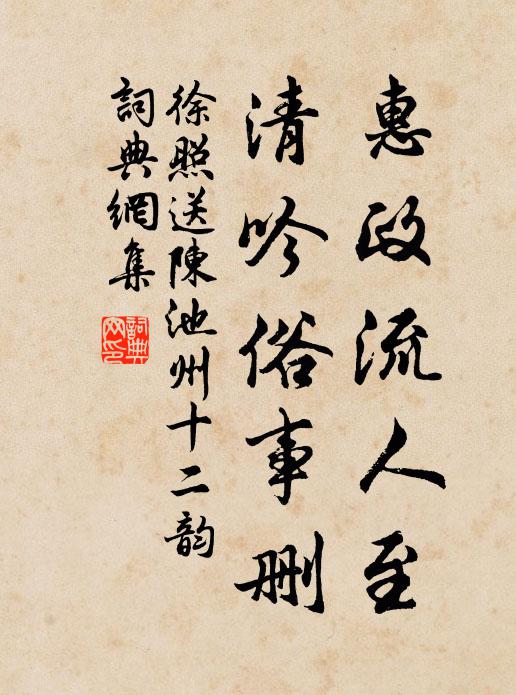 惠政流人至
清吟俗事删
徐照送陳池州十二韵
詞典網集
詞典網印